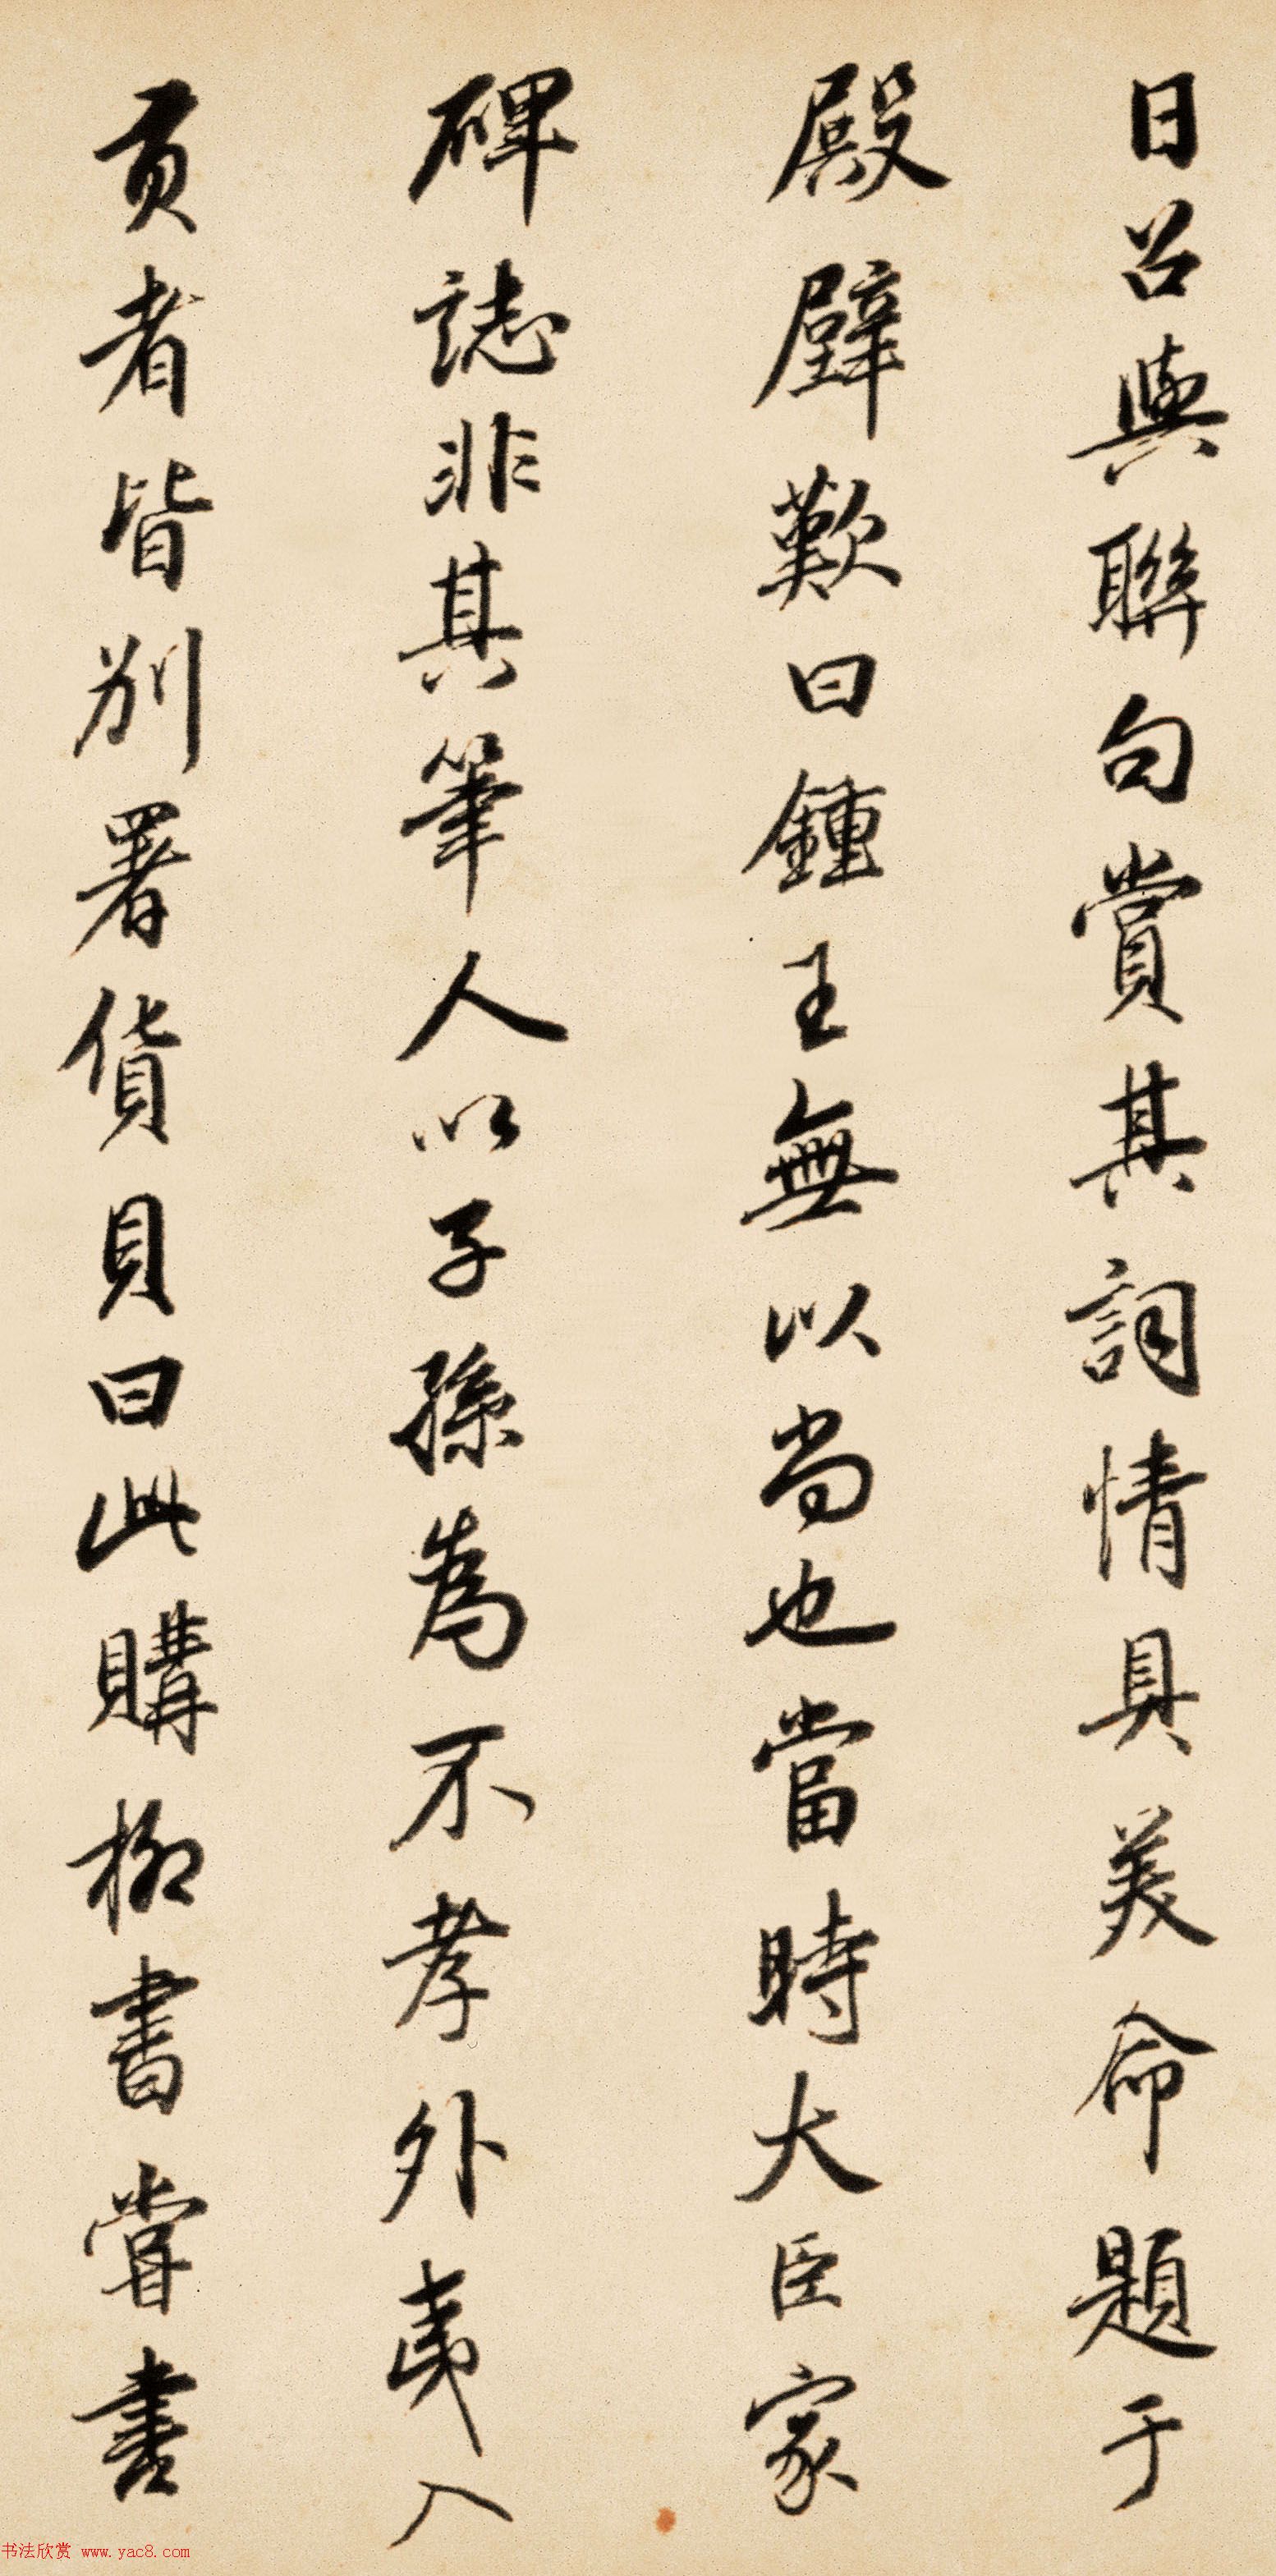 日召與聯句賞其詞情具美命題于
殿壁歎曰鍾王無以尚也當時大臣家
碑誌非其筆人以子孫為不孝外夷入
貢者皆別署貨貝曰此購柳書嘗書
书法欣赏 www.yac8.com